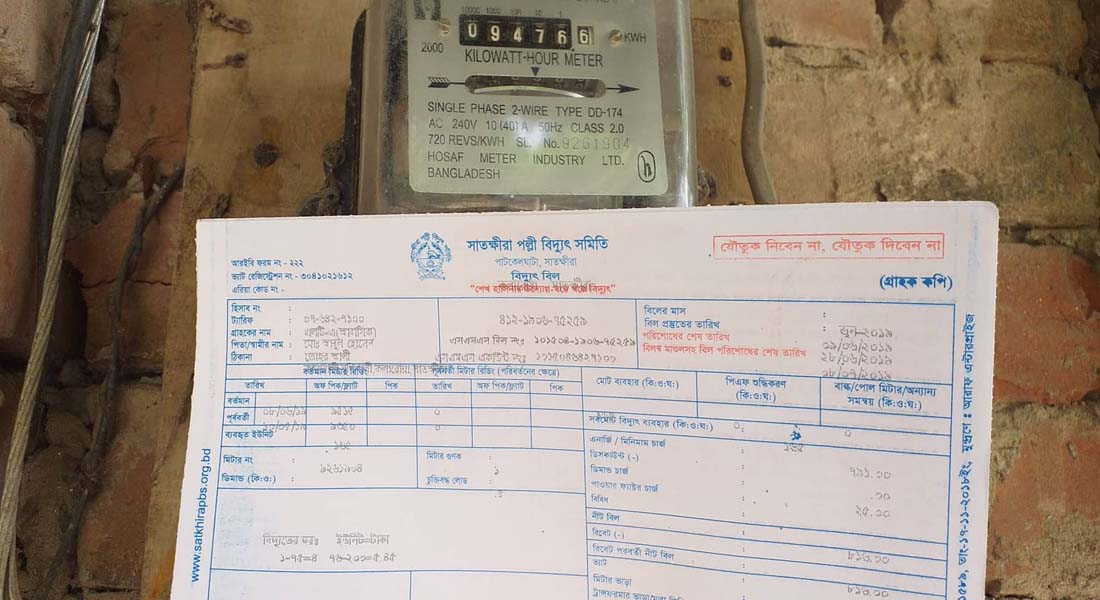 10000 1000 100 10 1
094766 KWH
2000
KILOWATT-HOUR METER
SINGLE PHASE 2-WIRE TYPE DD-174
AC 240V 10 (40) A 50Hz CLASS 2.0
720 REVS/KWH SL. No. 9261904
HOSAF METER INDUSTRY LTD.
BANGLADESH
h
সাতক্ষীরা পল্লী বিদ্যুৎ সমিতি
পাটকেলঘাটা, সাতক্ষীরা
বিদ্যুৎ বিল
যৌতুক নিবেন না, যৌতুক দিবেন না
(গ্রাহক কপি)
আরইবি ফরম নং - ২২২
ভ্যাট রেজিস্ট্রেশন নং - ৩০৪১০২১৬১২
এরিয়া কোড নং -
হিসাব নং :
ট্যারিফ : ০৭-৬৪২-৭১০০
গ্রাহকের নাম : এলটি-এ(আবাসিক)
পিতা/স্বামীর নাম : মোঃ আবুল হোসেন
ঠিকানা : জোহর আলী
৪১২-১৯০৬-৭৫২৫৯
এসএমএস বিল নংঃ ১০১৫০৪-১৯০৬-৭৫২৫৯
এসএমএস একাউন্ট নংঃ ১০১৫০৪৬৪২৭১০০
বিলের মাস :
বিল প্রস্তুতের তারিখ : জুন-২০১৯
পরিশোধের শেষ তারিখ : ১৯/০৬/২০১৯
বিলম্ব মাশুলসহ বিল পরিশোধের শেষ তারিখ : ২৮/০৬/২০১৯
২৮/০৭/২০১৯
বর্তমান মিটার রিডিং
পূর্ববর্তী মিটার রিডিং (পরিবর্তনের ক্ষেত্রে)
তারিখ অফ পিক/ফ্ল্যাট পিক তারিখ অফ পিক/ফ্ল্যাট পিক
মোট ব্যবহার (কি:ও:ঘ:)
পিএফ শুদ্ধিকরণ (কি:ও:ঘ:)
বাল্ক/পোল মিটার/অন্যান্য সমন্বয় (কি:ও:ঘ:)
বর্তমান
পূর্ববর্তী ০৮/০৬/১৯ ৯৫১৫ ০
ব্যবহৃত ইউনিট ৯৩৫০ ০
১৬৫
মিটার নং : ৯২৬১৯০৪
ডিমান্ড (কি:ও:) :
মিটার গুণক : ১
চুক্তিবদ্ধ লোড :
সর্বমোট বিদ্যুৎ ব্যবহার (কি:ও:ঘ:) : ০ ০
এনার্জি / মিনিমাম চার্জ : ১৬৫
ডিসকাউন্ট (-) : ৭৯১.০০
ডিমান্ড চার্জ : .০০
পাওয়ার ফ্যাক্টর চার্জ : ২৫.০০
বিবিধ :
নীট বিল :
রিবেট (-) : ৮১৬.০০
রিবেট পরবর্তী নীট বিল :
ভ্যাট : ৮১৬.০০
মিটার ভাড়া :
বিদ্যুতের দরঃ ইউনিট=টাকা
১-৭৫=৪ ৭৬-২০০=৫.৪৫
www.satkhirapbs.org.bd